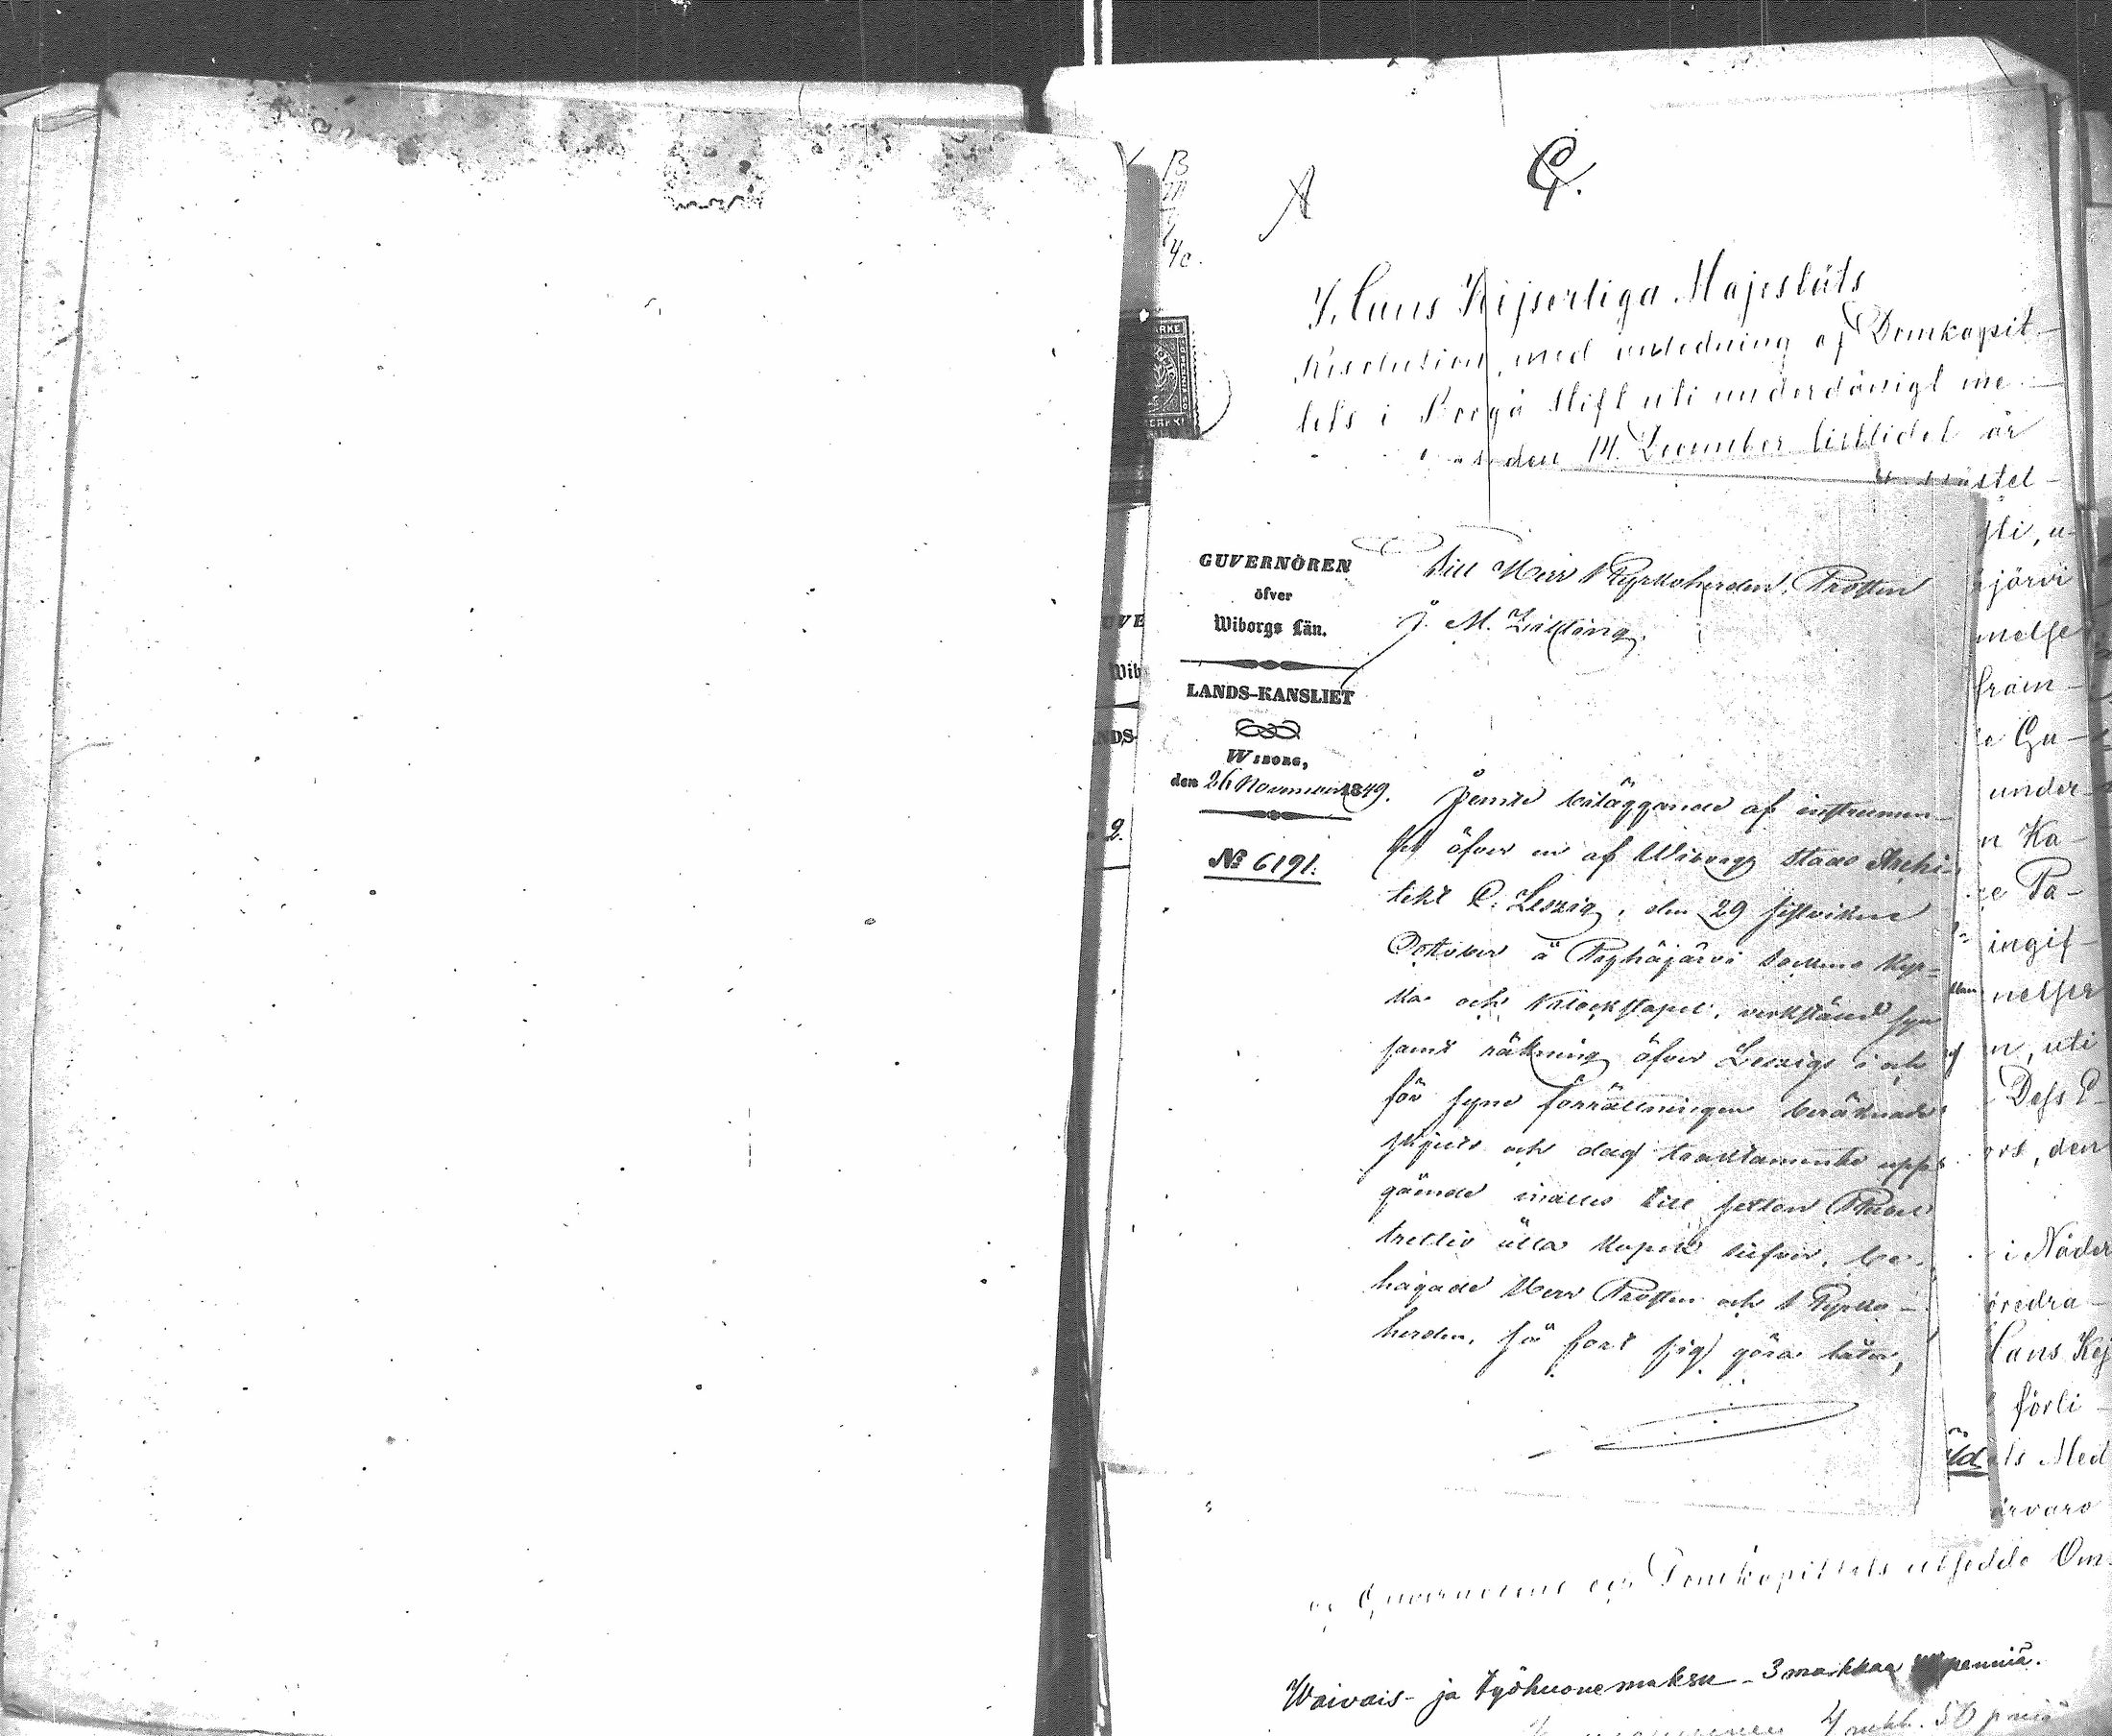 A
C.
H. Hans Kejserliga Majestäts
Resolution, med anledning af Domkapit-
lets i Borgå Stift uti underdånigt me-
den 14. December sistlidet år
GUVERNÖREN
öfver
Wiborgs Län.
LANDS-KANSLIET
WIBORG,
den 26 November 1849.
№ 6191.
Till Herr Kyrkoherden, Prosten
J. M. Zitting.
Jemte biläggande af instrumen-
tet öfver en af Wiborgs stads Archi-
tekt C. Leszig, den 29 sistvikne
October å Pyhäjärvi sockne Kyr-
ka och Klockstapel, verkstäld syn
samt räkning öfver Leszigs i och
för syne förrättningen beräknade
skjuts och dag traktamente upp-
gående inalles till sexton Rubel
trettio åtta kopek silfver, be-
hagade Herr Prosten och Kyrko-
herden, så fort sig göra låter,
stel-
järvi
melse
fram-
e Gu-
under-
n Ka-
ce Pa-
ingif-
nelser
n, uti
Dess E-
ors, den
i Nåder
öredra-
Hans Kej
förli-
ts Med
ärvaro
Guvernörens och Domkapitlets utsedde Om-
Waivais- ja työhuonemaksu - 3 markkaa penniä.
4 mkk. 50 penniä